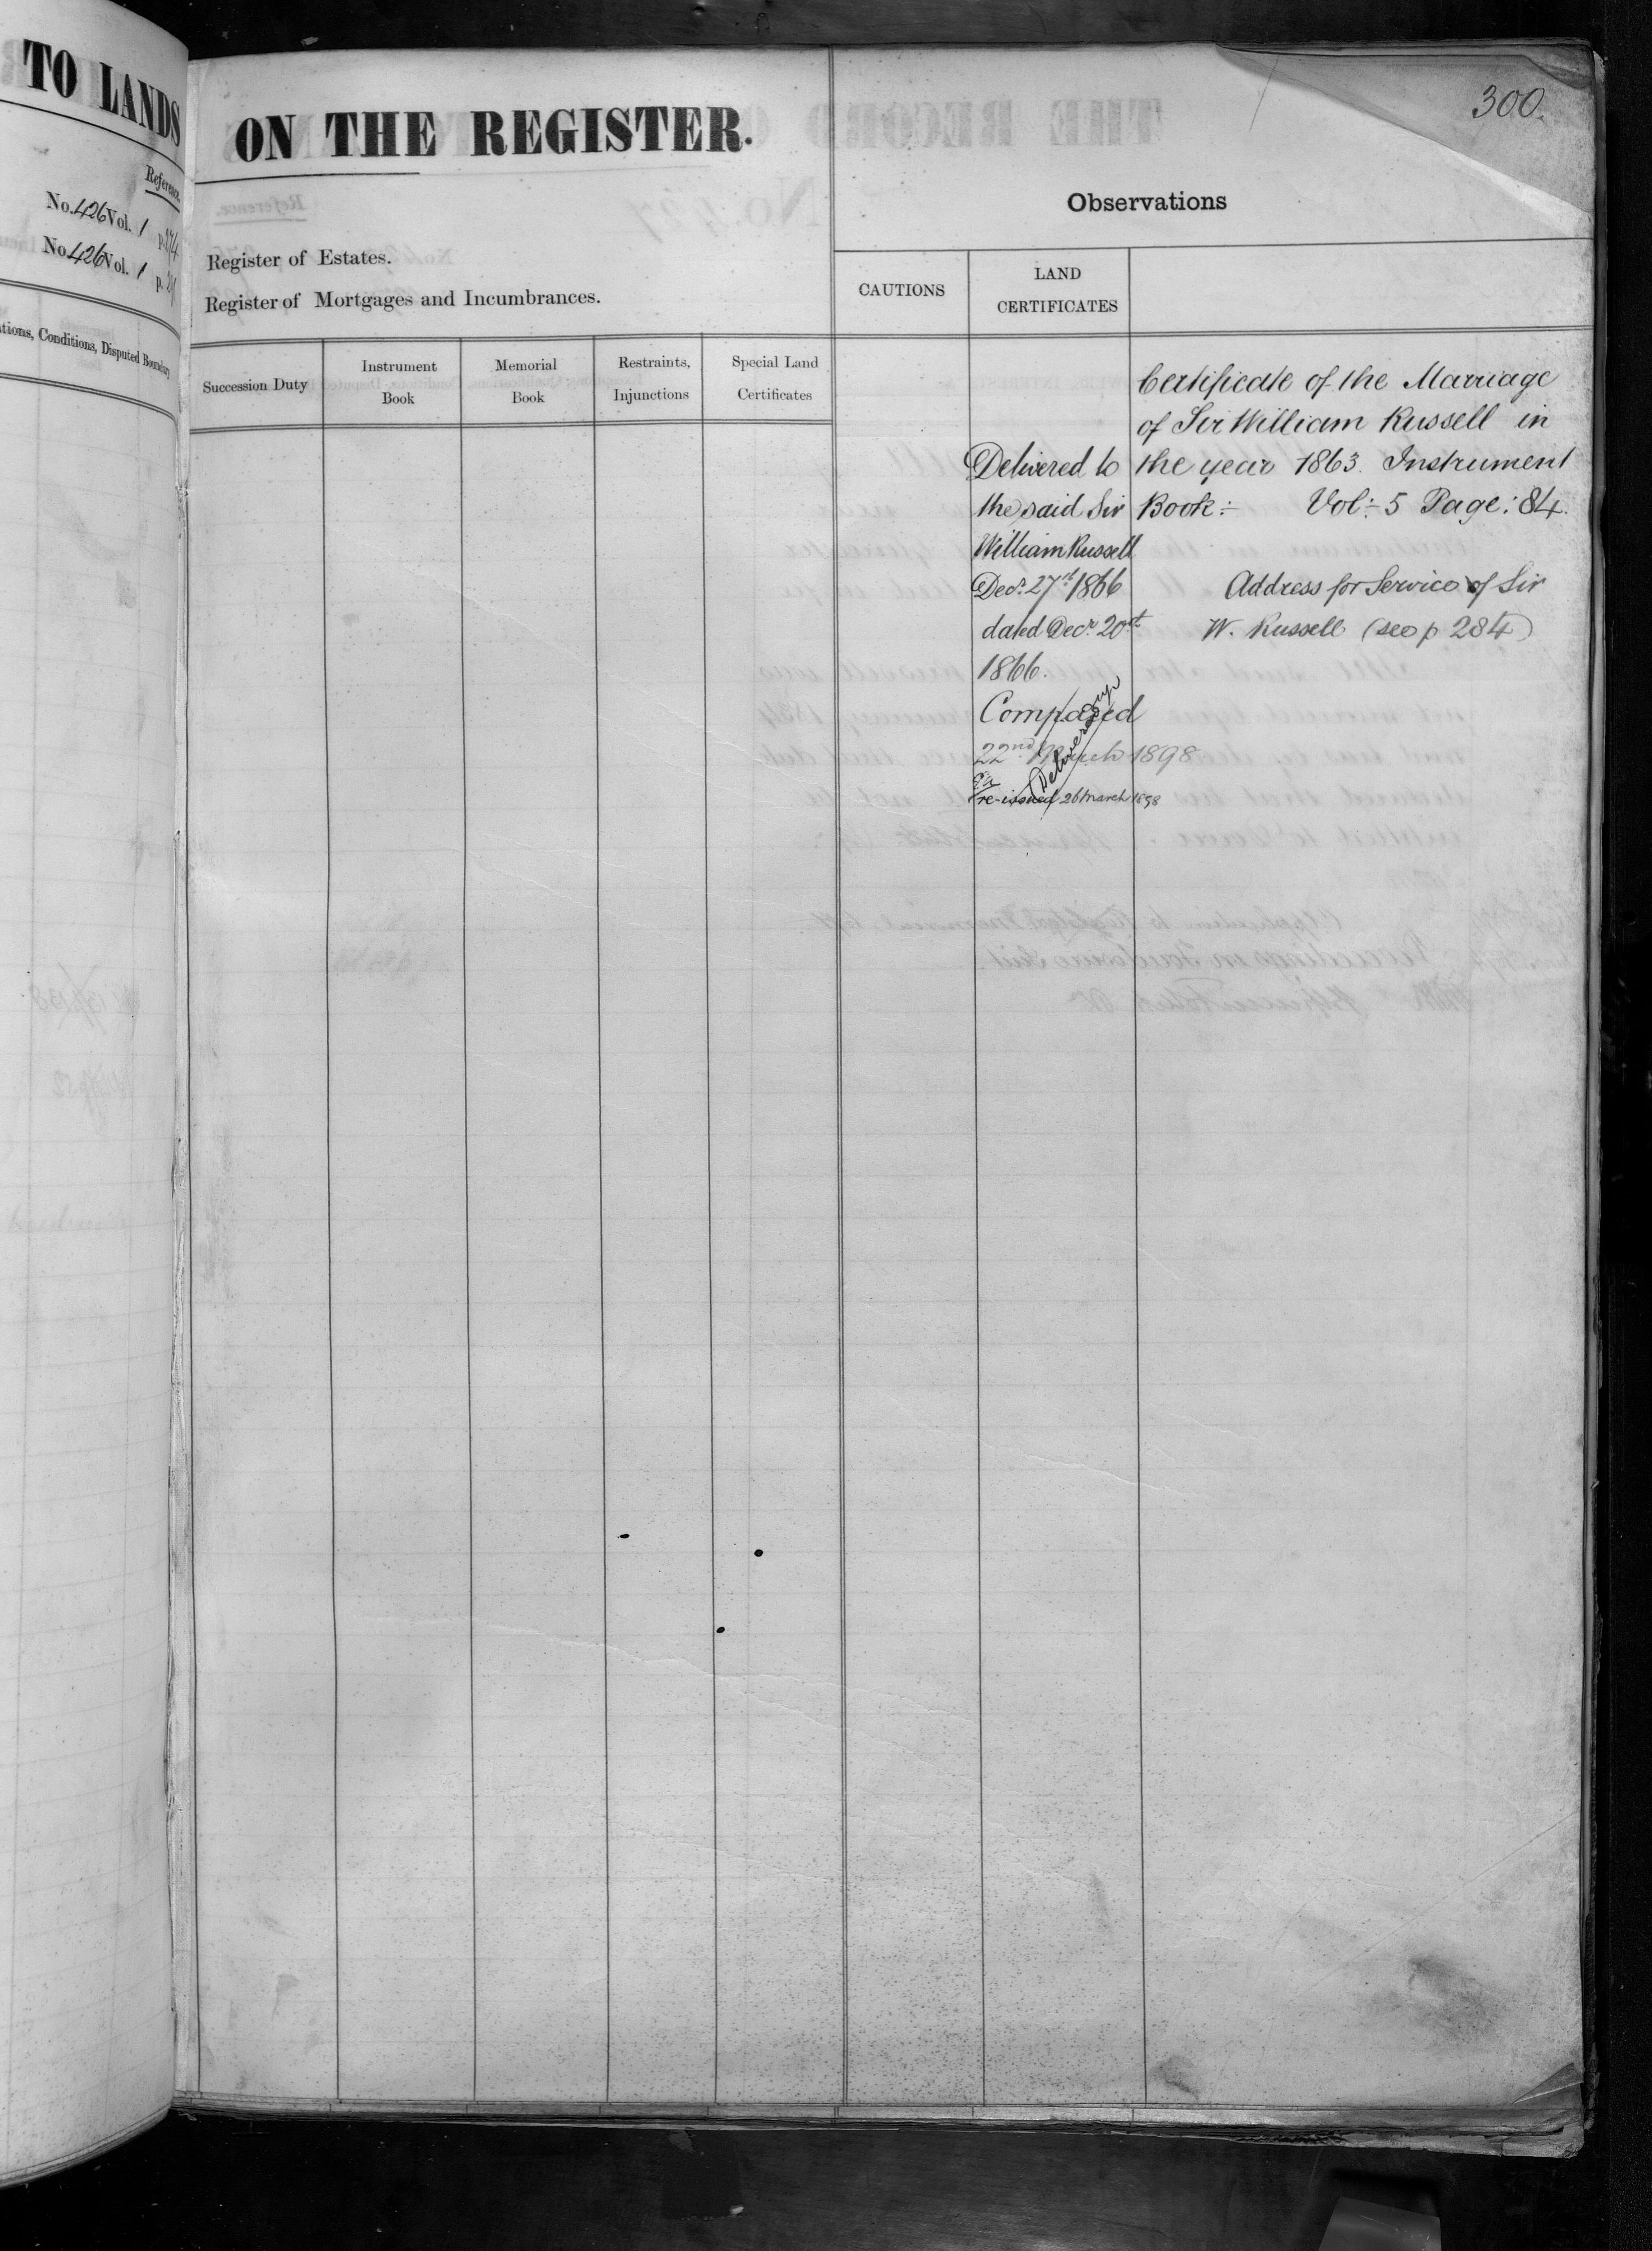 TO LANDS
Reference.
No. 426 Vol. 1 p. 274
No. 426 Vol. 1 p.
Conditions, Disputed Boundary
300.
ON THE REGISTER.
Register of Estates.
Register of Mortgages and Incumbrances.
Succession Duty
Instrument
Book
Memorial
Book
Restraints,
Injunctions
Special Land
Certificates
Observations
CAUTIONS
LAND
CERTIFICATES
Delivered to
the said Sir
William Russell
Decr. 27th 1866
dated Decr. 20th
1866.
Compared
22nd March 1898
re-issued 26 March 1898
Delivered up
Certificate of the Marriage
of Sir William Russell in
the year 1863. Instrument
Book:- Vol:- 5 Page: 84.
Address for Service of Sir
W. Russell (see p 284)